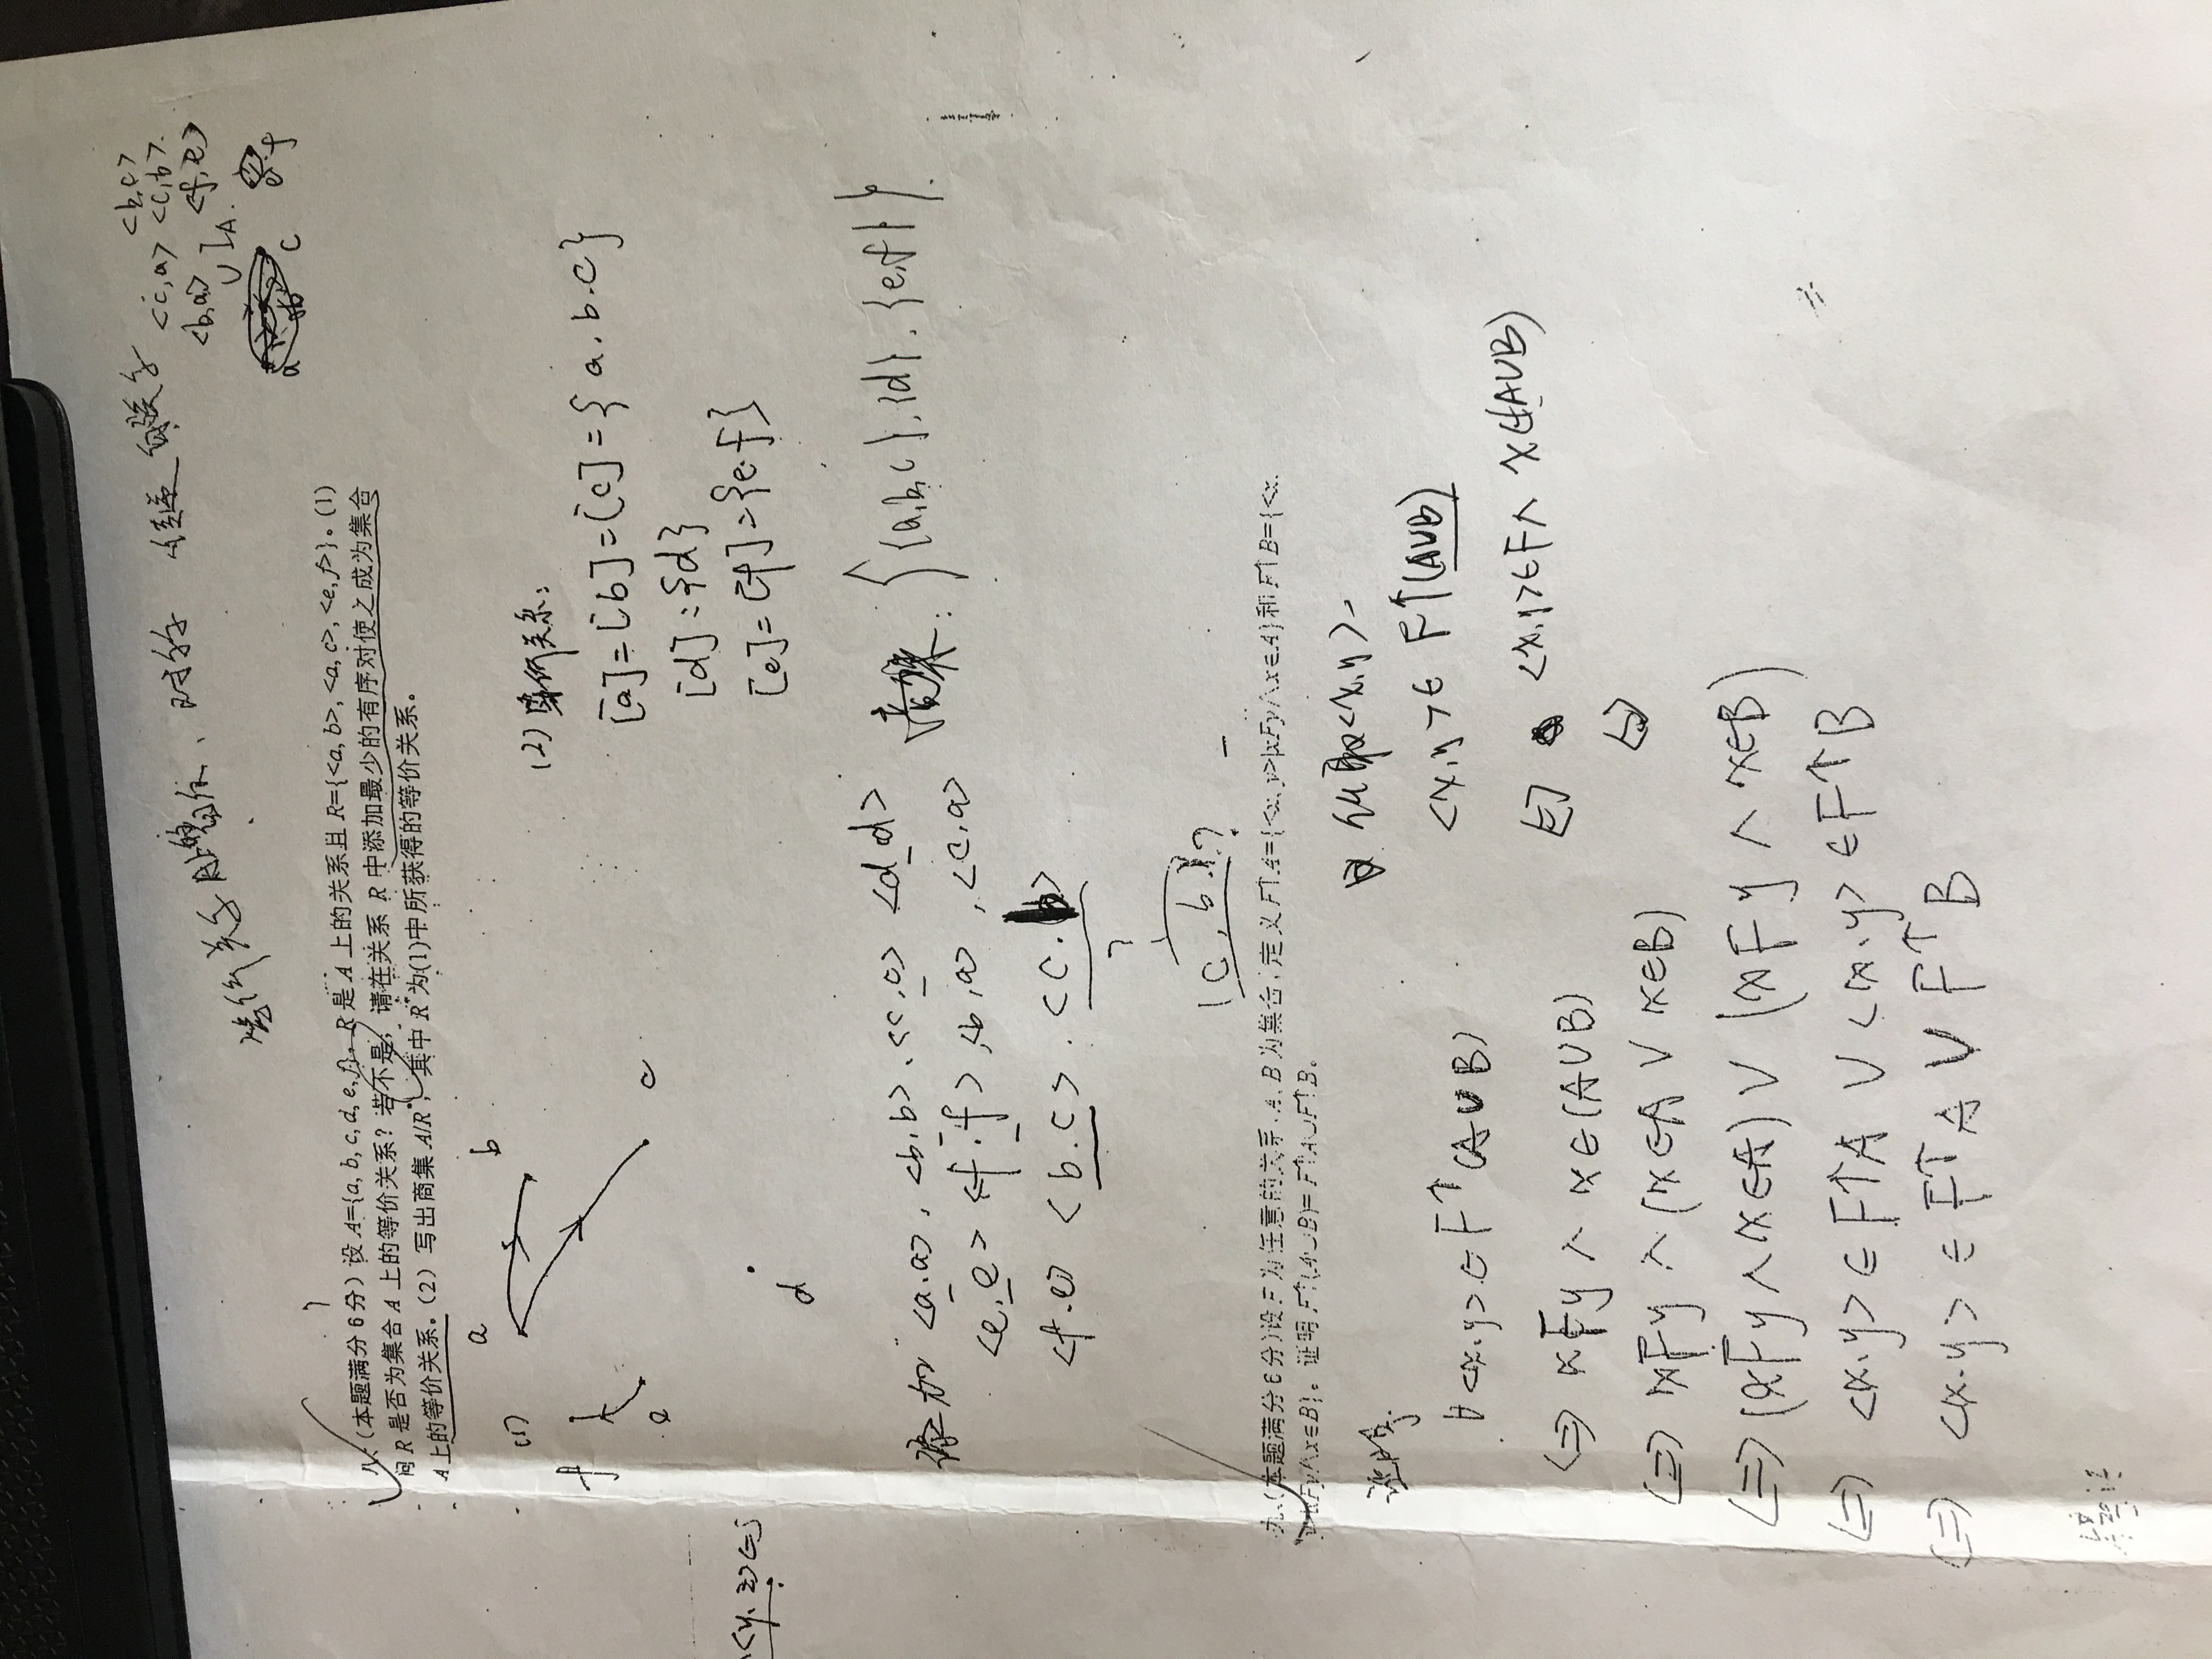 等价关系 自反、对称 传递 自反
<b,c>
<c,a> <c,b>.
<b,a> <f,e>
∪ I_A.
a b c e f
八、(本题满分6分) 设 A={a, b, c, d, e, f}, R 是 A 上的关系且 R={<a, b>, <a, c>, <e, f>}。(1)
问 R 是否为集合 A 上的等价关系？若不是，请在关系 R 中添加最少的有序对使之成为集合
A 上的等价关系。(2) 写出商集 A/R*, 其中 R*为(1)中所获得的等价关系。
(1)
a b
f
e c
d
<y, z>∈
添加 <a.a>, <b,b>, <c,c> <d,d>
<e,e> <f.f>, <b,a>, <c,a>
<f.e> <b.c>. <c.b>
?
(c, b)?
(2) 等价关系:
[a]=[b]=[c]={a.b.c}
[d]={d}
[e]=[f]={e.f}
商集: {{a,b,c},{d},{e,f}}.
九、(本题满分6分)设 F 为任意的关系, A, B 为集合, 定义 F↑A={<x, y>|xFy∧x∈A}和 F↑B={<x,
y>|xFy∧x∈B}。证明 F↑(A∪B)= F↑A∪F↑B。
证明:
∀<x.y>∈F↑(A∪B)
<=> xFy ∧ x∈(A∪B)
<=> xFy ∧ (x∈A ∨ x∈B)
<=> (xFy ∧ x∈A) ∨ (xFy ∧ x∈B)
<=> <x.y>∈F↑A ∨ <x.y>∈F↑B
<=> <x.y>∈F↑A ∪ F↑B
任取<x,y>.
<x,y>∈ F↑(A∪B)
<=> <x,y>∈F∧ x∈(A∪B)
<=>